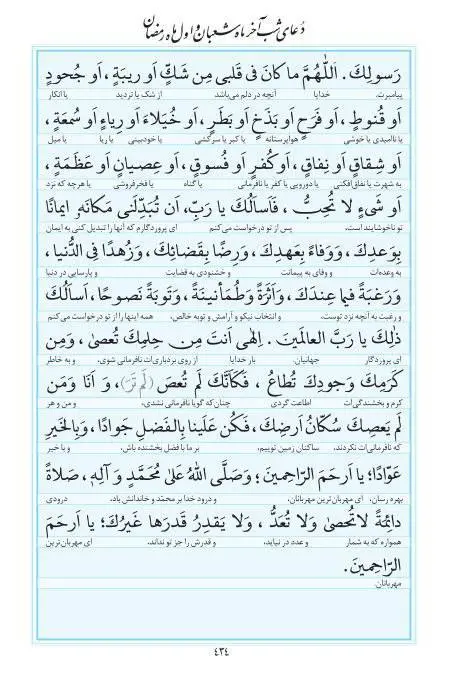 دُعای شب آخر ماه شعبان و اول ماه رمضان
رَسولِكَ . اَللّٰهُمَّ ما كانَ فى قَلبى مِن شَكٍّ اَو ريبَةٍ ، اَو جُحودٍ
پیامبرت. خدایا آنچه در دلم می‌باشد از شک یا تردید یا انکار
اَو قُنوطٍ ، اَو فَرَحٍ اَو بَذَخٍ اَو بَطَرٍ ، اَو خُيَلاءَ اَو رِياءٍ اَو سُمعَةٍ ،
یا ناامیدی یا خوشی هواپرستانه یا کبر یا سرکشی یا خودبینی یا ریا یا میل
اَو شِقاقٍ اَو نِفاقٍ ، اَو كُفرٍ اَو فُسوقٍ ، اَو عِصيانٍ اَو عَظَمَةٍ ،
به شهرت یا نفاق‌افکنی یا دورویی یا کفر یا نافرمانی یا گناه یا فخرفروشی یا هرچه که نزد
اَو شَىءٍ لا تُحِبُّ ، فَاَسأَلُكَ يا رَبِّ، اَن تُبَدِّلَنى مَكانَهُ ايمانًا
تو ناخوشایند است، پس از تو درخواست می‌کنم ای پروردگارم که آنها را تبدیل کنی به ایمان
بِوَعدِكَ ، وَوَفاءً بِعَهدِكَ، وَرِضًا بِقَضائِكَ، وَزُهدًا فِى الدُّنيا،
به وعده‌ات و وفای به پیمانت و خشنودی به قضایت و پارسایی در دنیا
وَرَغبَةً فيما عِندَكَ، وَاَثَرَةً وَطُمَأنينَةً، وَتَوبَةً نَصوحًا، اَسأَلُكَ
و رغبت به آنچه نزد توست، و انتخاب نیکو و آرامش و توبه خالص، همه اینها را از تو درخواست می‌کنم
ذٰلِكَ يا رَبَّ العالَمينَ . اِلٰهى اَنتَ مِن حِلمِكَ تُعصىٰ، وَمِن
ای پروردگار جهانیان. بار خدایا از روی بردباری‌ات نافرمانی شوی، و به خاطر
كَرَمِكَ وَجودِكَ تُطاعُ ، فَكَأَنَّكَ لَم تُعصَ (لَم تُرَ)، وَ اَنا وَمَن
کرم و بخشندگی‌ات اطاعت گردی چنان‌که گویا نافرمانی نشدی، و من و هر
لَم يَعصِكَ سُكّانُ اَرضِكَ، فَكُن عَلَينا بِالفَضلِ جَوادًا، وَبِالخَيرِ
که نافرمانی‌ات نکردند، ساکنان زمین توییم، بر ما با فضل بخشنده باش، و با خیر
عَوّادًا؛ يا اَرحَمَ الرّاحِمينَ؛ وَصَلَّى اللهُ عَلىٰ مُحَمَّدٍ وَ آلِهِ، صَلاةً
بهره رسان، ای مهربان‌ترین مهربانان، و درود خدا بر محمّد و خاندانش باد، درودی
دائِمَةً لا تُحصىٰ وَلا تُعَدُّ ، وَلا يَقدِرُ قَدرَها غَيرُكَ؛ يا اَرحَمَ
همواره که به شمار و عدد در نیاید، و قدرش را جز تو نداند، ای مهربان‌ترین
الرّاحِمينَ .
مهربانان.
٤٣٤